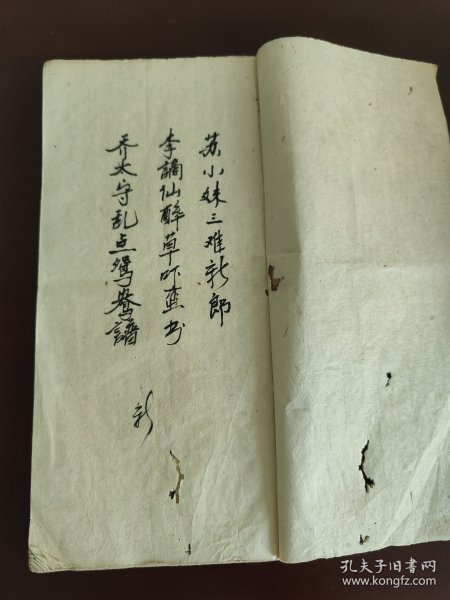 苏小妹三难新郎
李謫仙醉草吓蛮书
乔太守乱点鸳鸯譜
新
孔夫子旧书网
www.kongfz.com